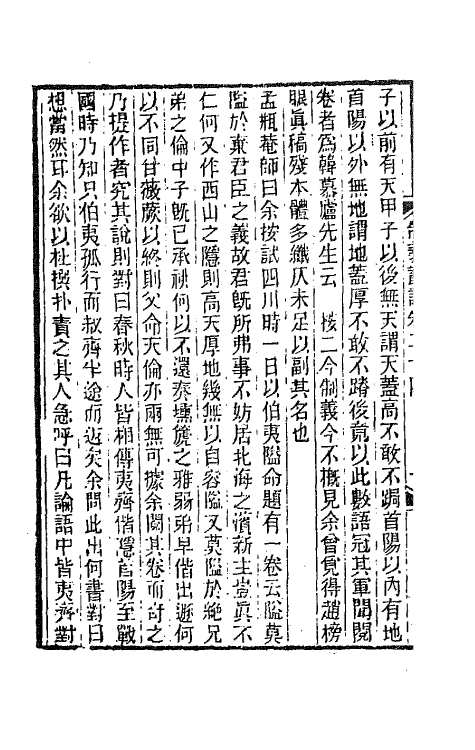 子以前有天甲子以後無天謂天蓋高不敢不跼首陽以內有地
首陽以外無地謂地蓋厚不敢不蹐後竟以此數語冠其軍聞閱
卷者爲韓慕廬先生云 按二今制義今不概見余曾覓得趙榜
眼眞稿殘本體多纖仄未足以副其名也
孟瓶菴師曰余按試四川時一日以伯夷隘命題有一卷云隘莫
隘於棄君臣之義故君旣所弗事不妨居北海之濱新主豈眞不
仁何又作西山之隱則高天厚地幾無以自容隘又莫隘於絶兄
弟之倫中子旣已承祧何以不還奏壎箎之雅弱弟早偕出遊何
以不同甘薇蕨以終則父命天倫亦兩無可據余閱其卷而奇之
乃提作者究其說則對曰春秋時人皆相傳夷齊偕隱首陽至戰
國時乃知只伯夷孤行而叔齊半途而返矣余問此出何書對曰
想當然耳余欲以杜撰扑責之其人急呼曰凡論語中皆夷齊對